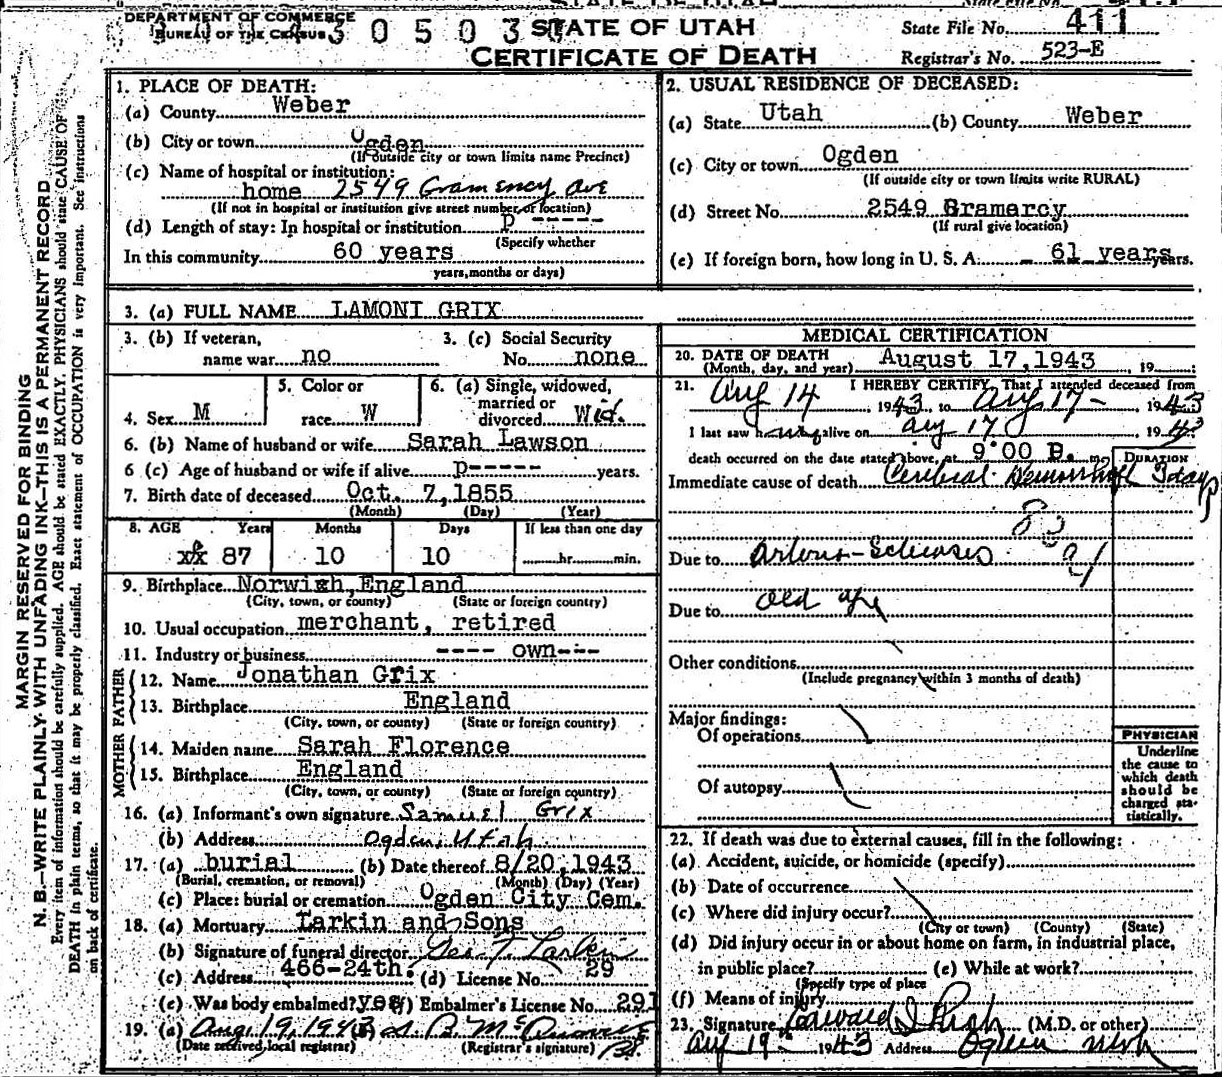 DEPARTMENT OF COMMERCE
BUREAU OF THE CENSUS
STATE OF UTAH
CERTIFICATE OF DEATH
State File No. 411
Registrar's No. 523-E
MARGIN RESERVED FOR BINDING
N. B.—WRITE PLAINLY WITH UNFADING INK—THIS IS A PERMANENT RECORD
Every item of information should be carefully supplied. AGE should be stated EXACTLY. PHYSICIANS should state CAUSE OF
DEATH in plain terms, so that it may be properly classified. Exact statement of OCCUPATION is very important. See instructions
on back of certificate.
1. PLACE OF DEATH:
(a) County Weber
(b) City or town Ogden
(If outside city or town limits name Precinct)
(c) Name of hospital or institution:
home 2549 Gramency Ave
(If not in hospital or institution give street number or location)
(d) Length of stay: In hospital or institution p -----
(Specify whether
In this community 60 years
years, months or days)
2. USUAL RESIDENCE OF DECEASED:
(a) State Utah (b) County Weber
(c) City or town Ogden
(If outside city or town limits write RURAL)
(d) Street No. 2549 Gramercy
(If rural give location)
(e) If foreign born, how long in U. S. A. 61 years years.
3. (a) FULL NAME LAMONI GRIX
3. (b) If veteran, name war no
3. (c) Social Security No. none
4. Sex M
5. Color or race W
6. (a) Single, widowed, married or divorced Wid.
6. (b) Name of husband or wife Sarah Lawson
6 (c) Age of husband or wife if alive p----- years.
7. Birth date of deceased Oct. 7, 1855
(Month) (Day) (Year)
8. AGE Years Months Days If less than one day
xx 87 10 10 hr. min.
9. Birthplace Norwich, England
(City, town, or county) (State or foreign country)
10. Usual occupation merchant, retired
11. Industry or business ---- own---
FATHER
12. Name Jonathan Grix
13. Birthplace England
(City, town, or county) (State or foreign country)
MOTHER
14. Maiden name Sarah Florence
15. Birthplace England
(City, town, or county) (State or foreign country)
16. (a) Informant's own signature Samuel Grix
(b) Address Ogden, Utah
17. (a) burial (b) Date thereof 8/20, 1943
(Burial, cremation, or removal) (Month) (Day) (Year)
(c) Place: burial or cremation Ogden City Cem.
18. (a) Mortuary Larkin and Sons
(b) Signature of funeral director Geo. F. Larkin
(c) Address 466-24th. (d) License No. 29
(e) Was body embalmed? yes (f) Embalmer's License No. 291
19. (a) Aug. 19, 1943 (b)
(Date received local registrar) (Registrar's signature)
MEDICAL CERTIFICATION
20. DATE OF DEATH August 17, 1943, 19
(Month, day, and year)
21. I HEREBY CERTIFY, That I attended deceased from
Aug 14, 1943, to Aug 17-, 1943
I last saw him alive on Aug 17, 1943
death occurred on the date stated above, at 9:00 P. m.
DURATION
Immediate cause of death Cerebral Hemorrhage 3 days
Due to Arterio-Sclerosis
Due to old age
Other conditions
(Include pregnancy within 3 months of death)
Major findings:
Of operations
Of autopsy
PHYSICIAN
Underline
the cause to
which death
should be
charged sta-
tistically.
22. If death was due to external causes, fill in the following:
(a) Accident, suicide, or homicide (specify)
(b) Date of occurrence
(c) Where did injury occur?
(City or town) (County) (State)
(d) Did injury occur in or about home on farm, in industrial place,
in public place? (e) While at work?
(Specify type of place
(f) Means of injury
23. Signature (M.D. or other)
Aug 19- 1943 Address Ogden Utah